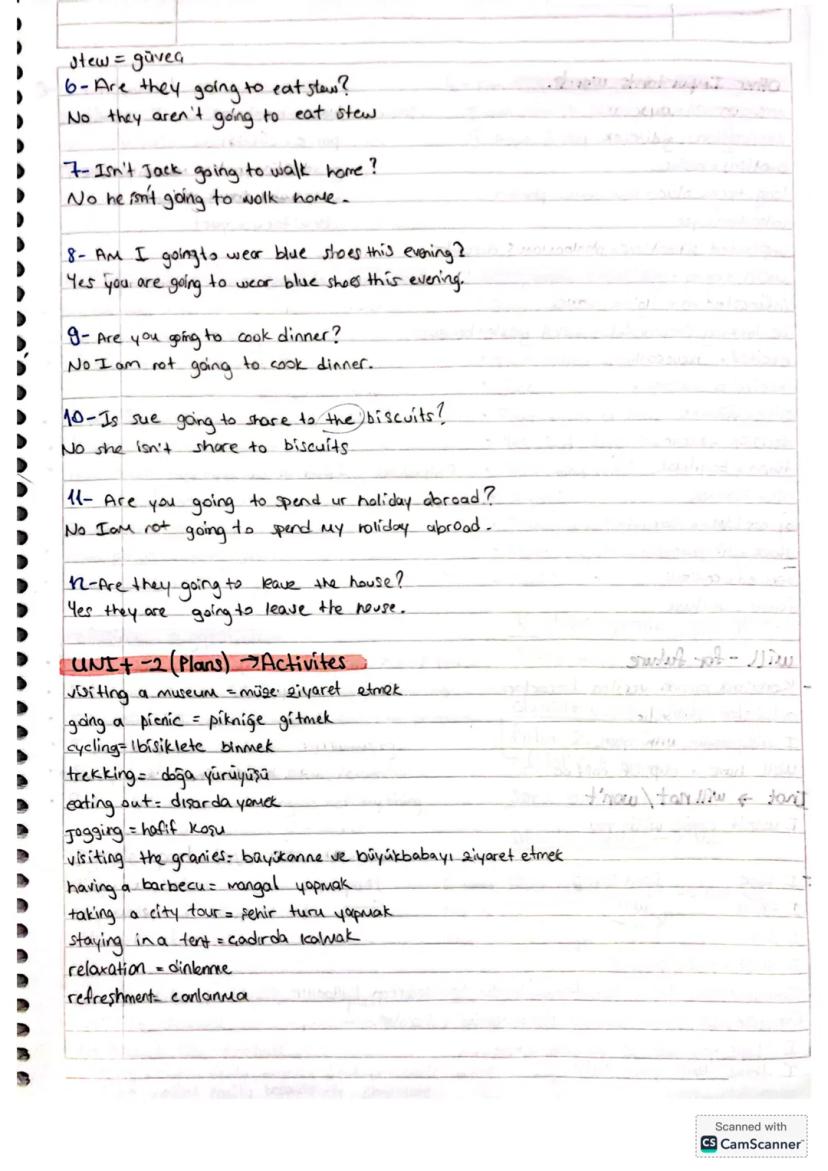 stew = güveç
6- Are they going to eat stew?
No they aren't going to eat stew
7- Isn't Jack going to walk home?
No he isn't going to walk home.
8- Am I going to wear blue shoes this evening?
Yes you are going to wear blue shoes this evening.
9- Are you going to cook dinner?
No I am not going to cook dinner.
10- Is sue going to share to the biscuits?
No she isn't share to biscuits
11- Are you going to spend ur holiday abroad?
No I am not going to spend my holiday abroad.
12- Are they going to leave the house?
Yes they are going to leave the house.
UNIt -2 (Plans) → Activites
visiting a museum = müze ziyaret etmek
going a picnic = pikniğe gitmek
cycling = bisiklete binmek
trekking = doğa yürüyüşü
eating out = dısarda yemek
jogging = hafif koşu
visiting the granies = büyükanne ve büyükbabayı ziyaret etmek
having a barbecu = mangal yapmak
taking a city tour = şehir turu yapmak
staying in a tent = çadırda kalmak
relaxation = dinlenme
refreshment = canlanma
Scanned with
CS CamScanner